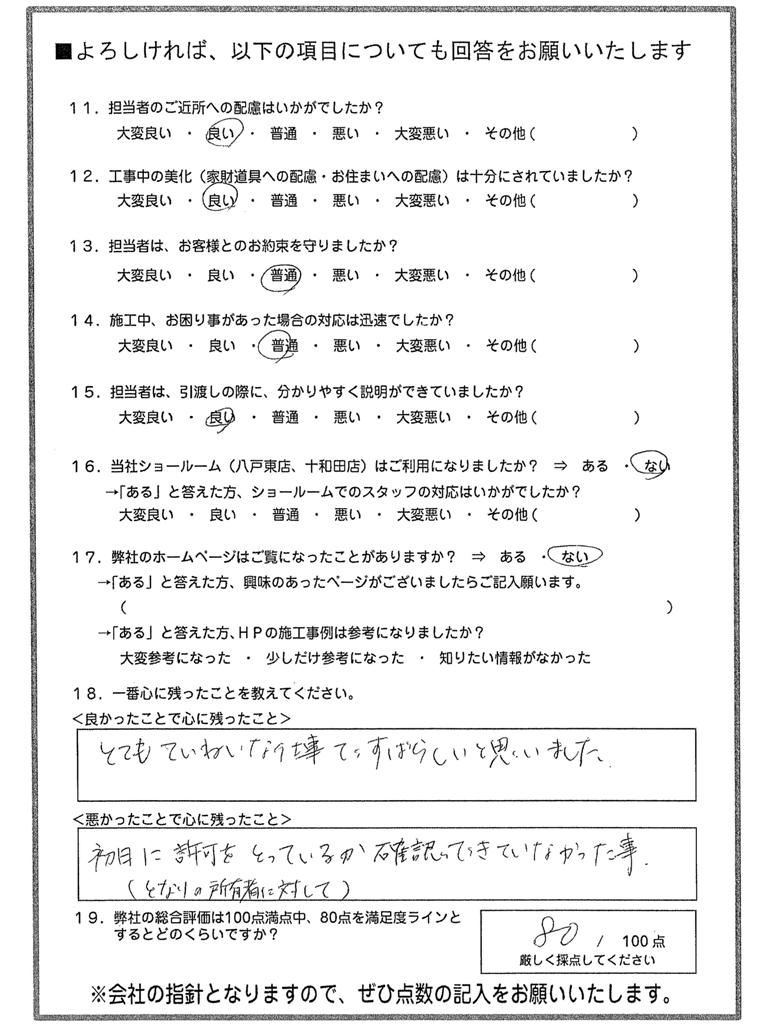 ■よろしければ、以下の項目についても回答をお願いいたします
11．担当者のご近所への配慮はいかがでしたか？
大変良い ・ 良い ・ 普通 ・ 悪い ・ 大変悪い ・ その他（ ）
12．工事中の美化（家財道具への配慮・お住まいへの配慮）は十分にされていましたか？
大変良い ・ 良い ・ 普通 ・ 悪い ・ 大変悪い ・ その他（ ）
13．担当者は、お客様とのお約束を守りましたか？
大変良い ・ 良い ・ 普通 ・ 悪い ・ 大変悪い ・ その他（ ）
14．施工中、お困り事があった場合の対応は迅速でしたか？
大変良い ・ 良い ・ 普通 ・ 悪い ・ 大変悪い ・ その他（ ）
15．担当者は、引渡しの際に、分かりやすく説明ができていましたか？
大変良い ・ 良い ・ 普通 ・ 悪い ・ 大変悪い ・ その他（ ）
16．当社ショールーム（八戸東店、十和田店）はご利用になりましたか？ ⇒ ある ・ ない
→「ある」と答えた方、ショールームでのスタッフの対応はいかがでしたか？
大変良い ・ 良い ・ 普通 ・ 悪い ・ 大変悪い ・ その他（ ）
17．弊社のホームページはご覧になったことがありますか？ ⇒ ある ・ ない
→「ある」と答えた方、興味のあったページがございましたらご記入願います。
（ ）
→「ある」と答えた方、HPの施工事例は参考になりましたか？
大変参考になった ・ 少しだけ参考になった ・ 知りたい情報がなかった
18．一番心に残ったことを教えてください。
＜良かったことで心に残ったこと＞
とてもていねいな仕事ですばらしいと思いました。
＜悪かったことで心に残ったこと＞
初日に許可をとっているか確認できていなかった事。
（となりの所有者に対して）
19．弊社の総合評価は100点満点中、80点を満足度ラインと
するとどのくらいですか？
80 / 100点
厳しく採点してください
※会社の指針となりますので、ぜひ点数の記入をお願いいたします。